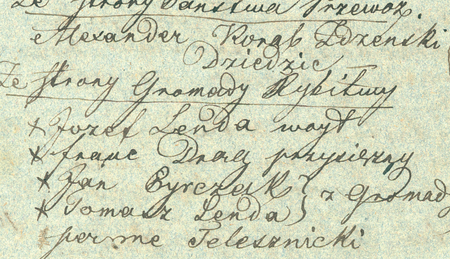 Ze strony Państwa Przewoz.
Alexander Korab Łdzenski
Dziedzic
Ze strony Gromady Rybitwy
x Jozef Lenda woyt
x franc Drag przysięzny
x Jan Gyrczak
x Tomasz Lenda } z Gromady
per me Telesznicki